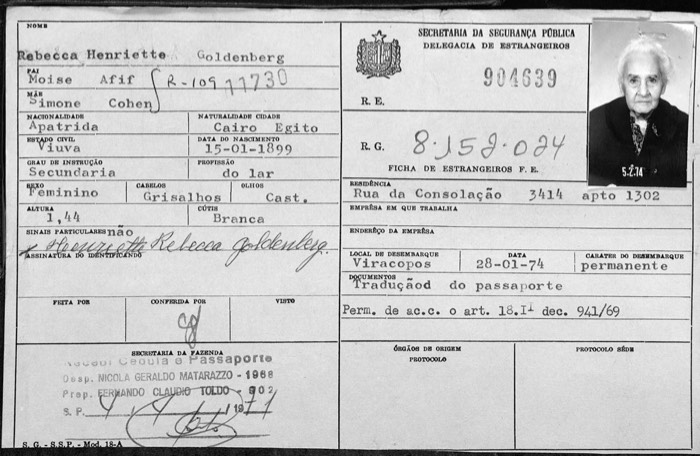 NOME
Rebecca Henriette Goldenberg
PAI
Moise Afif
R-109 11730
MÃE
Simone Cohen
NACIONALIDADE NATURALIDADE CIDADE
Apatrida Cairo Egito
ESTADO CIVIL DATA DO NASCIMENTO
Viuva 15-01-1899
GRAU DE INSTRUÇÃO PROFISSÃO
Secundaria do lar
SEXO CABELOS OLHOS
Feminino Grisalhos Cast.
ALTURA CÚTIS
1,44 Branca
SINAIS PARTICULARES não
Henriette Rebecca Goldenberg.
ASSINATURA DO IDENTIFICANDO
FEITA POR CONFERIDA POR VISTO
SECRETARIA DA FAZENDA
Cedula e Passaporte
Desp. NICOLA GERALDO MATARAZZO - 1968
Prep. FERNANDO CLAUDIO TOLDO - 902
S. P.
S. G. - S.S.P. - Mod. 18-A
SECRETARIA DA SEGURANÇA PÚBLICA
DELEGACIA DE ESTRANGEIROS
904639
R. E.
R. G. 8.152.024
FICHA DE ESTRANGEIROS F. E.
5.2.74
RESIDÊNCIA
Rua da Consolação 3414 apto 1302
EMPRÊSA EM QUE TRABALHA
ENDERÊÇO DA EMPRÊSA
LOCAL DE DESEMBARQUE DATA CARATER DO DESEMBARQUE
Viracopos 28-01-74 permanente
DOCUMENTOS
Traduçãod do passaporte
Perm. de ac.c. o art. 18.I dec. 941/69
ÓRGÃOS DE ORIGEM PROTOCOLO SÉDE
PROTOCOLO